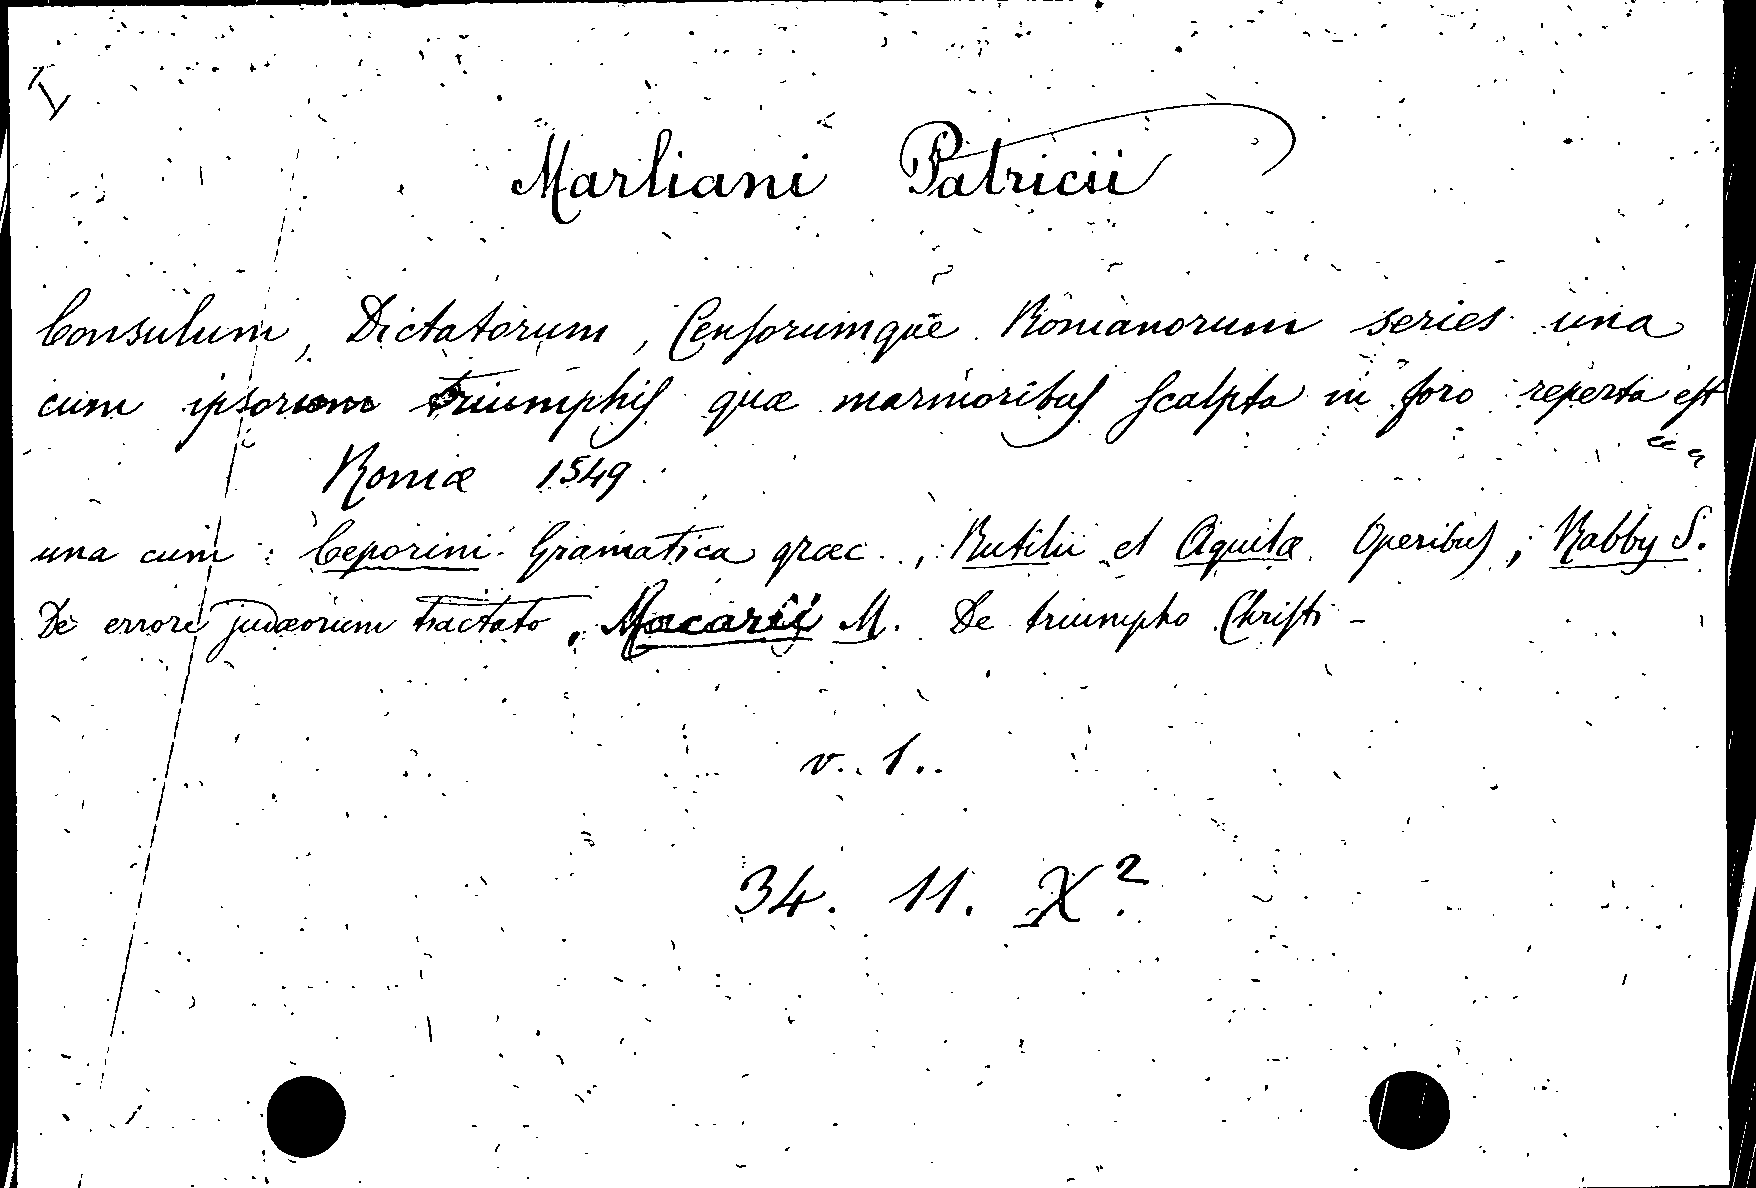 Marliani Patricii
Consulum, Dictatorum, Censorumque Romanorum series una
cum ipsorum triumphis quæ marmoribus scalpta in foro reperta est
Romæ 1549.
una cum: Ceporini Gramatica græc., Rutilii et Aquilæ Operibus; Rabby S.
De errore judæorum tractato, Macarii M. De triumpho Christi -
v. 1.
34. 11. X².